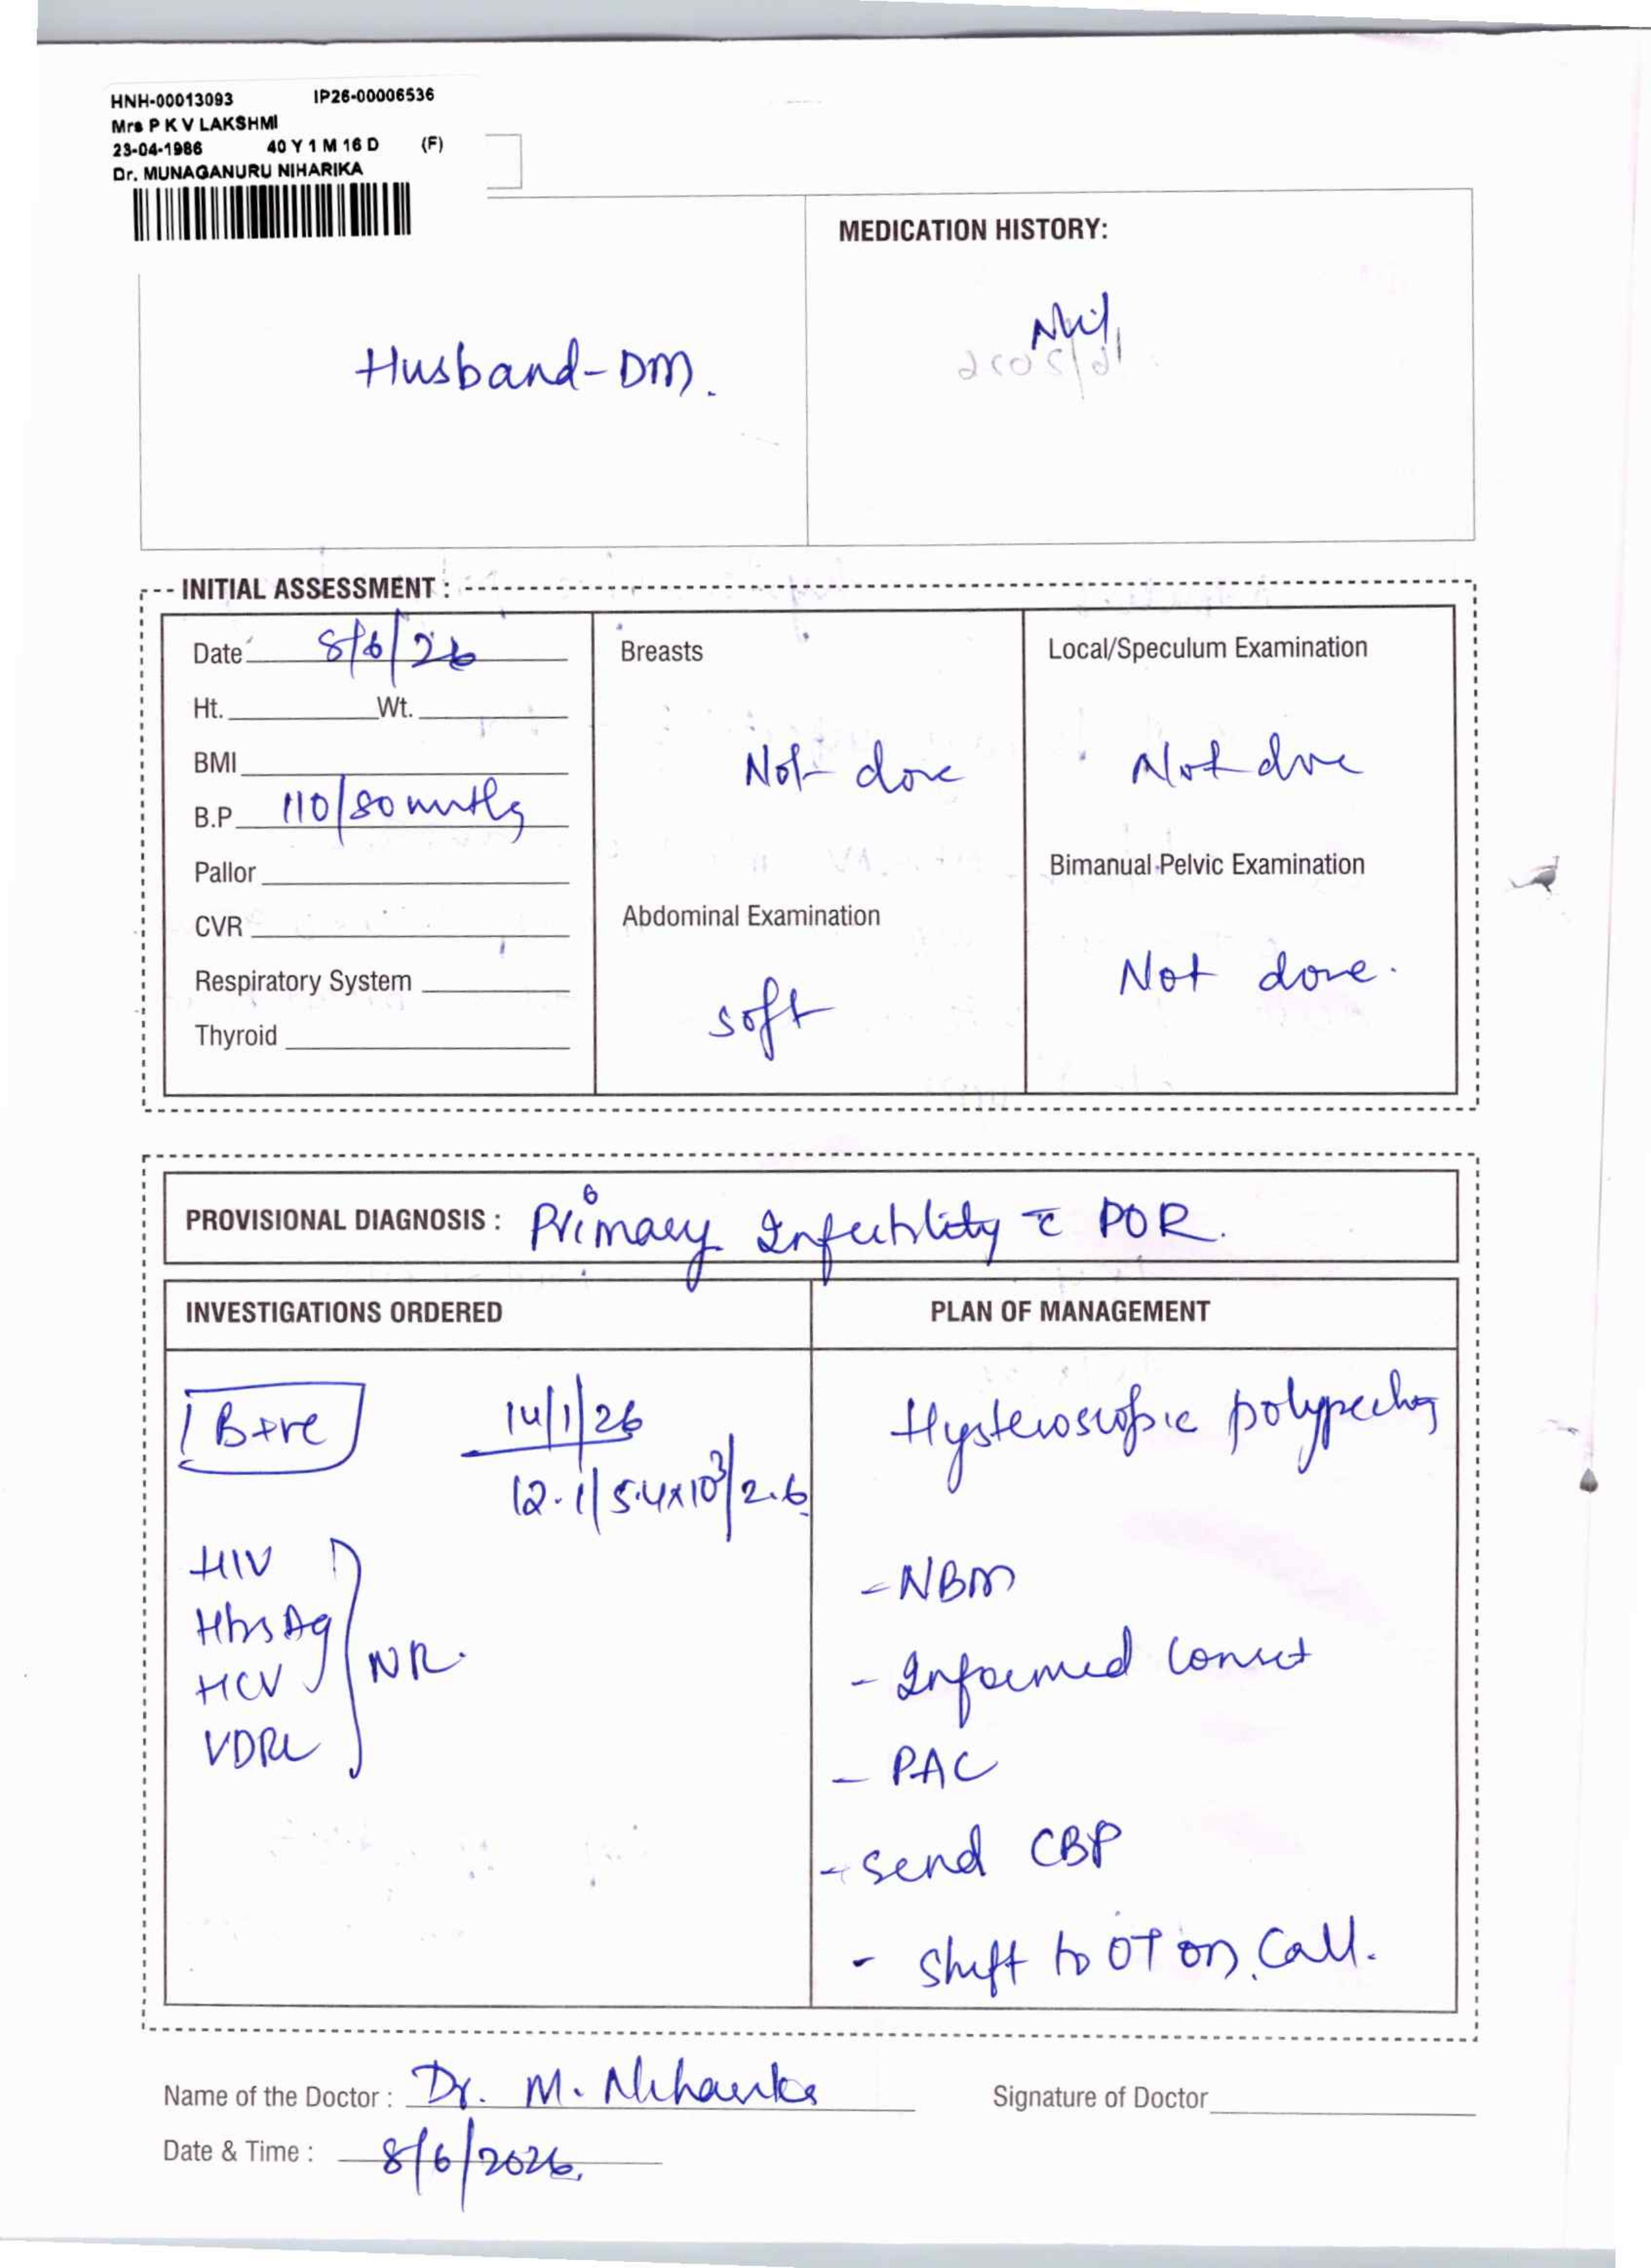 HNH-00013093 IP26-00006536
Mrs P K V LAKSHMI
23-04-1986 40 Y 1 M 16 D (F)
Dr. MUNAGANURU NIHARIKA
MEDICATION HISTORY:
Husband-DM.
Nil
INITIAL ASSESSMENT :
Date 8/6/26
Ht. Wt.
BMI
B.P 110/80 mmHg
Pallor
CVR
Respiratory System
Thyroid
Breasts
Not done
Abdominal Examination
soft
Local/Speculum Examination
Not done
Bimanual Pelvic Examination
Not done.
PROVISIONAL DIAGNOSIS : Primary Infertility c̄ POR.
INVESTIGATIONS ORDERED
B+ve
14/1/26
12.1/5.4x10³/2.6
HIV
HbsAg
HCV
VDRL
NR.
PLAN OF MANAGEMENT
Hysteroscopic polypectomy
- NBM
- Informed consent
- PAC
- send CBP
- Shift to OT on call.
Name of the Doctor : Dr. M. Niharika
Signature of Doctor
Date & Time : 8/6/2026.